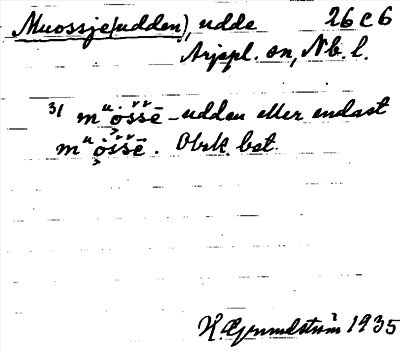 Muossje(udden), udde 26 c 6
Arjepl. sn, Nb. l.
31 mᵘo̭šsē-udden eller endast
mᵘo̭šsē. Obek. bet.
H. Grundström 1935